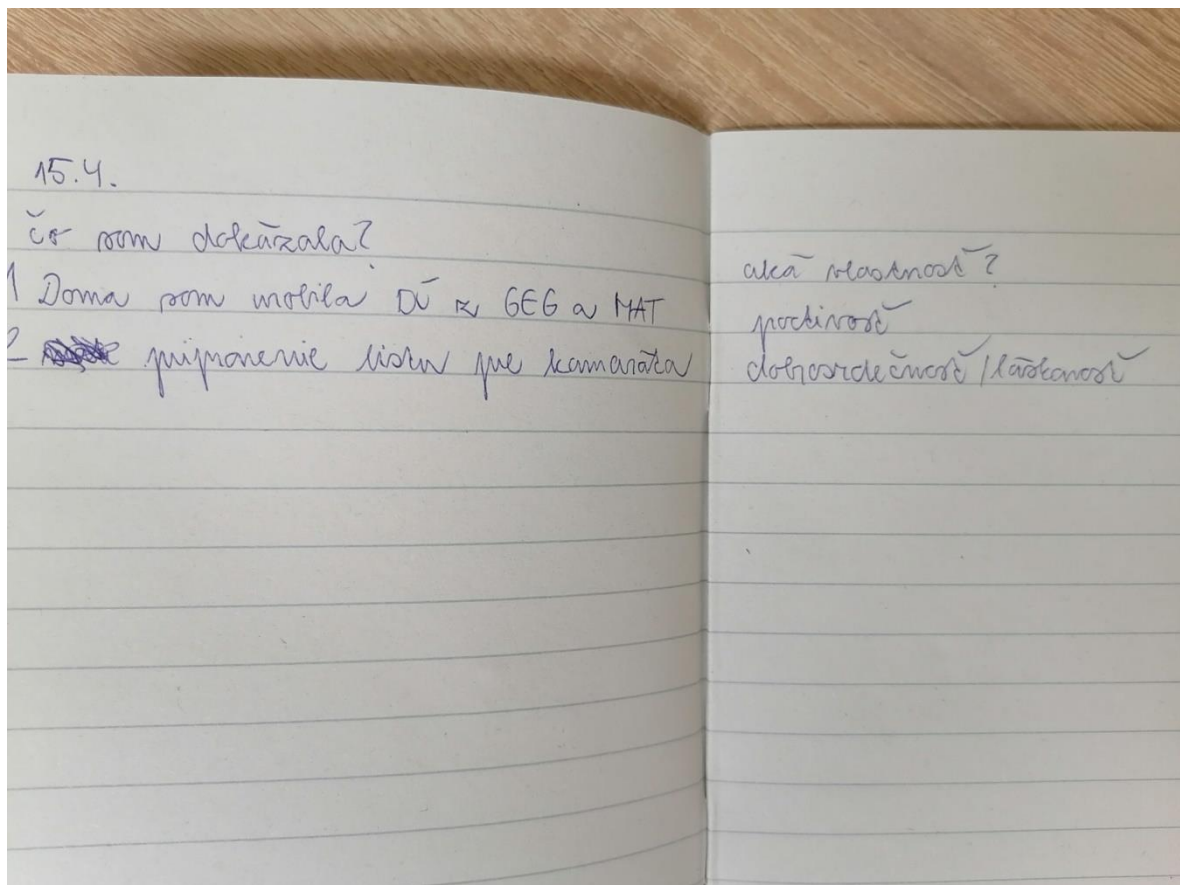 15.4.
čo som dokázala?
1 Doma som urobila DÚ z GEG a MAT
2 pripravenie listu pre kamaráta
aká vlastnosť?
poctivosť
dobrosrdečnosť/láskavosť